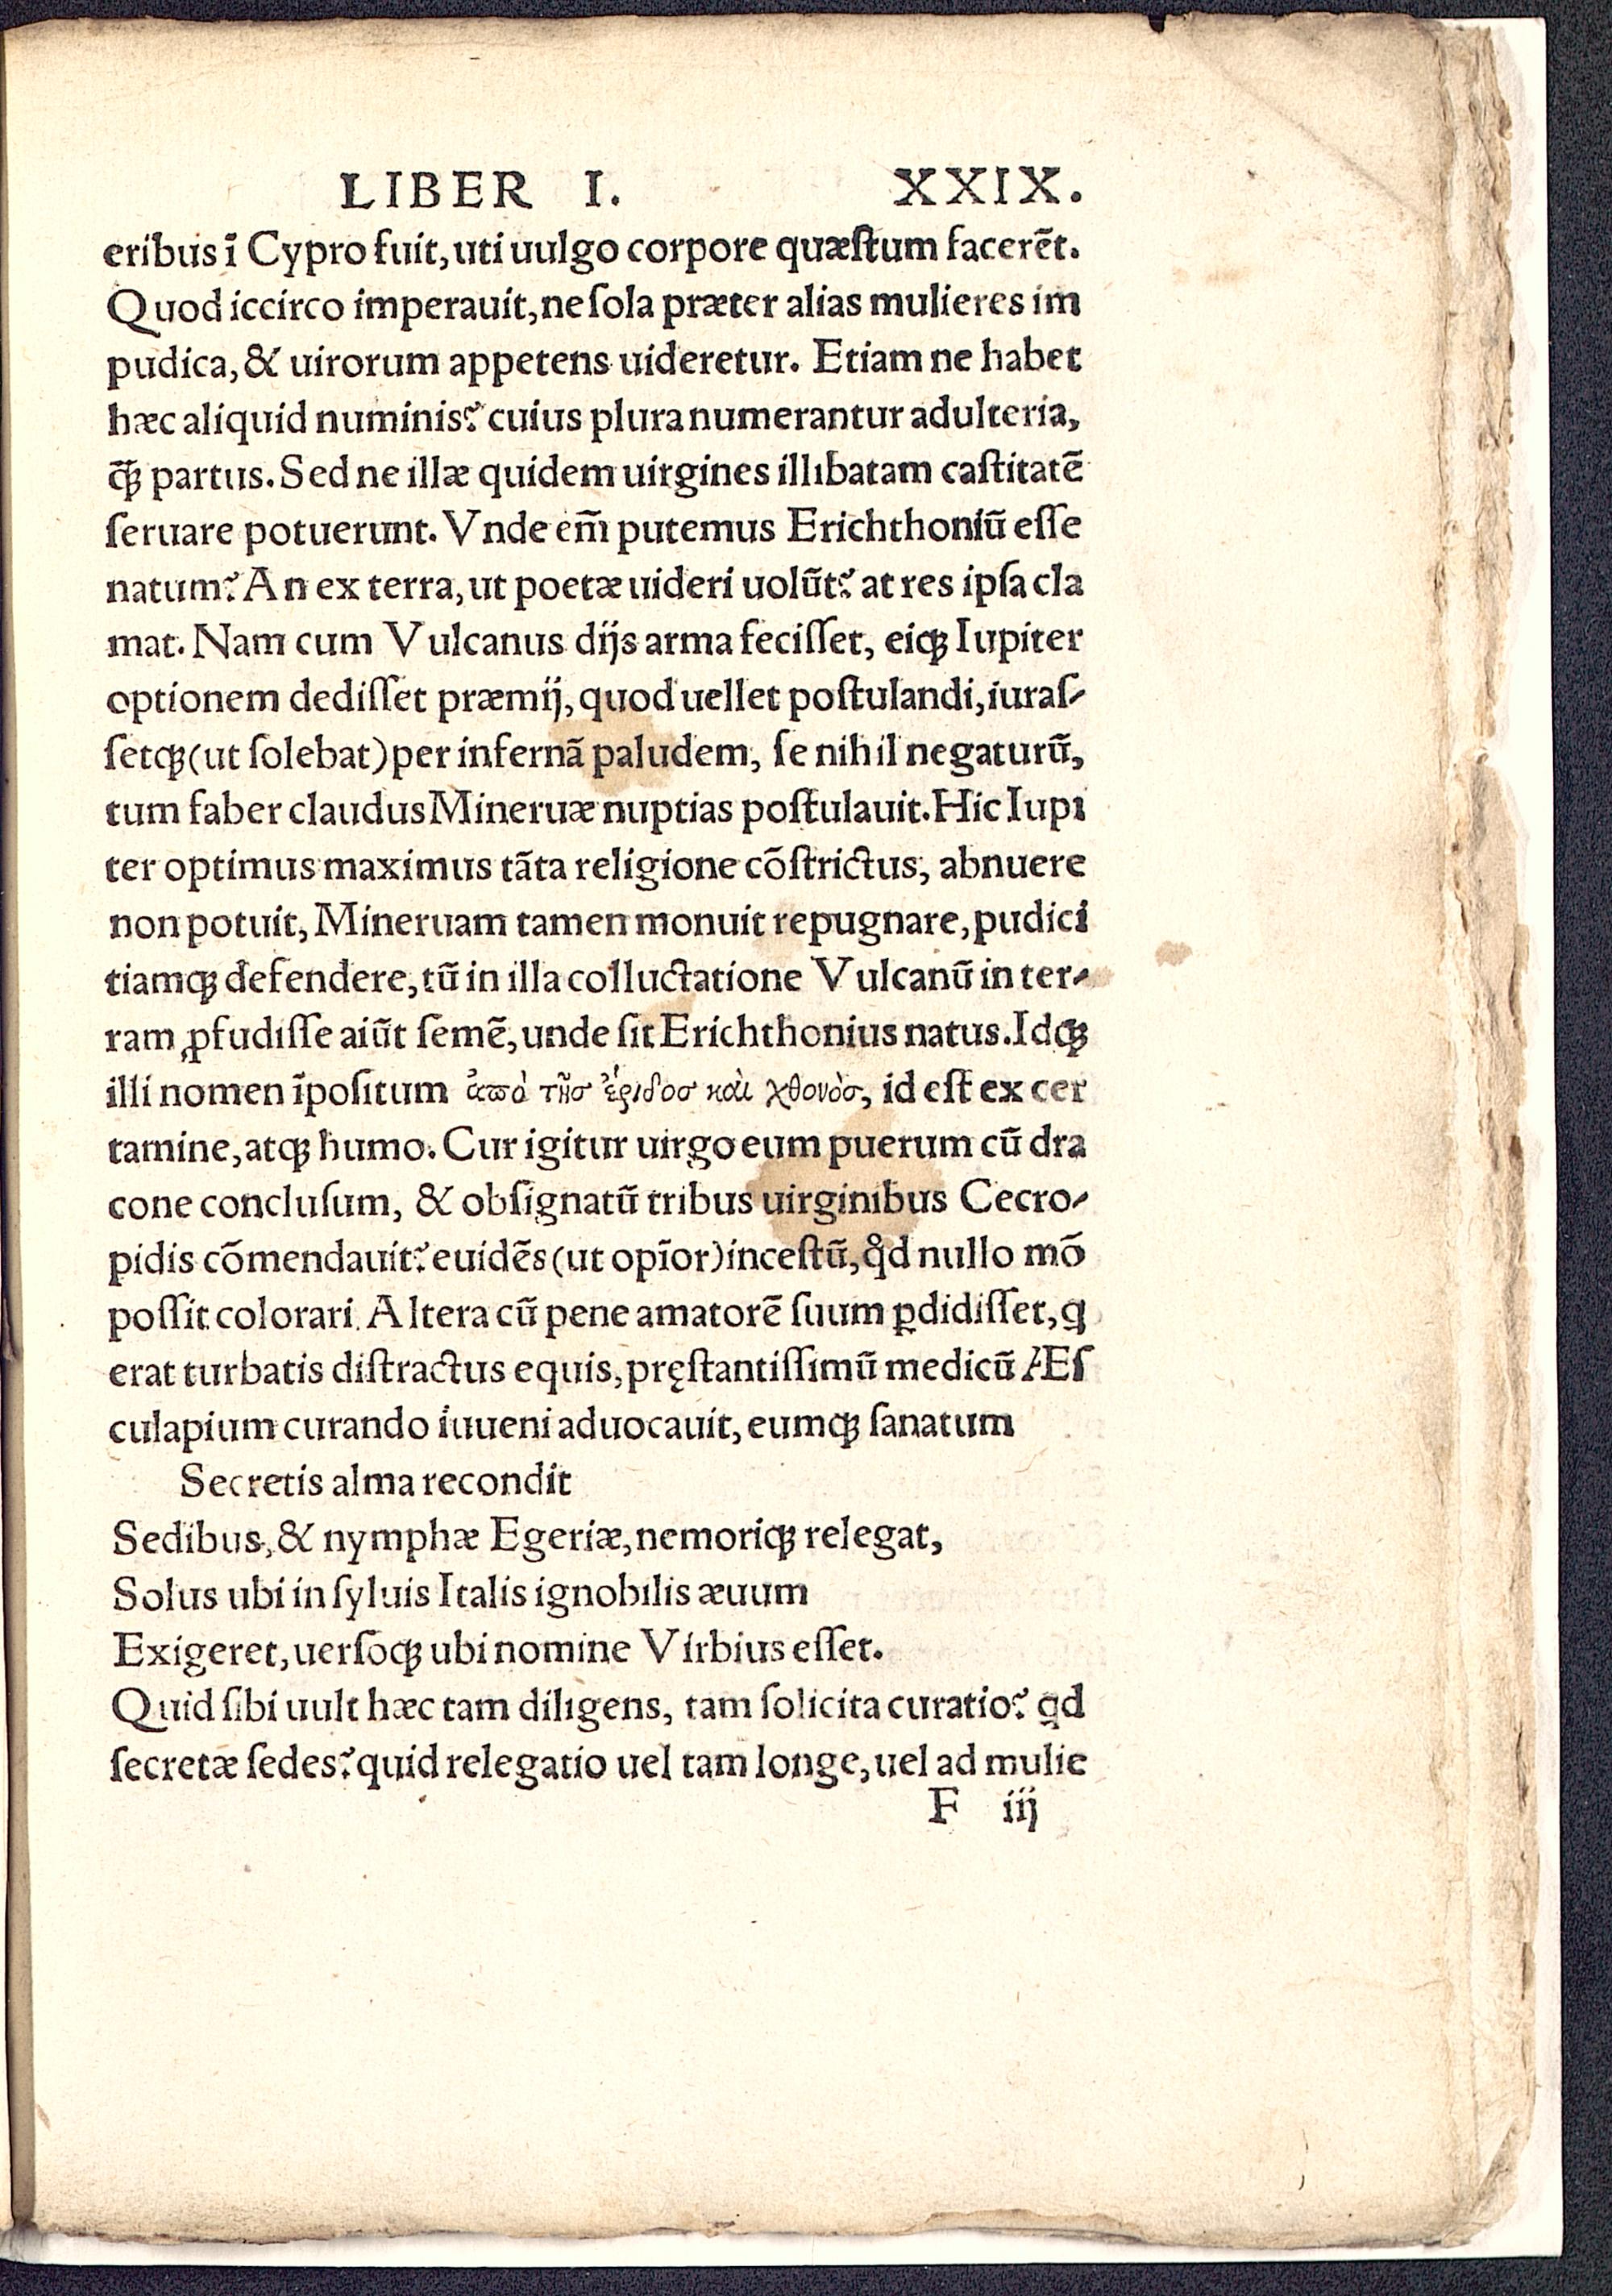 LIBER I. XXIX.
eribus ī Cypro fuit, uti uulgo corpore quæſtum facerēt.
Quod iccirco imperauit, ne ſola præter alias mulieres im
pudica, & uirorum appetens uideretur. Etiam ne habet
hæc aliquid numinis? cuius plura numerantur adulteria,
q̄ꝫ partus. Sed ne illæ quidem uirgines illibatam caſtitatē
ſeruare potuerunt. Vnde em̄ putemus Erichthoniū eſſe
natum? An ex terra, ut poetæ uideri uolūt? at res ipſa cla
mat. Nam cum Vulcanus dijs arma feciſſet, eiqꝫ Iupiter
optionem dediſſet præmij, quod uellet poſtulandi, iuraſ⸗
ſetqꝫ (ut ſolebat) per infernā paludem, ſe nihil negaturū,
tum faber claudus Mineruæ nuptias poſtulauit. Hic Iupi
ter optimus maximus tāta religione cōſtrictus, abnuere
non potuit, Mineruam tamen monuit repugnare, pudici
tiamqꝫ defendere, tū in illa colluctatione Vulcanū in ter⸗
ram ꝓfudiſſe aiūt ſemē, unde ſit Erichthonius natus. Idqꝫ
illi nomen īpoſitum ἀπὸ τῆσ ἔριδοσ καὶ χθονὸσ, id eſt ex cer
tamine, atqꝫ humo. Cur igitur uirgo eum puerum cū dra
cone concluſum, & obſignatū tribus uirginibus Cecro⸗
pidis cōmendauit? euidēs (ut opīor) inceſtū, qd nullo mō
poſſit colorari. Altera cū pene amatorē ſuum ꝑdidiſſet, q
erat turbatis diſtractus equis, pręſtantiſſimū medicū Æſ
culapium curando iuueni aduocauit, eumqꝫ ſanatum
Secretis alma recondit
Sedibus, & nymphæ Egeriæ, nemoriqꝫ relegat,
Solus ubi in ſyluis Italis ignobilis æuum
Exigeret, uerſoqꝫ ubi nomine Virbius eſſet.
Quid ſibi uult hæc tam diligens, tam ſolicita curatio? qd
ſecretæ ſedes? quid relegatio uel tam longe, uel ad mulie
F iij